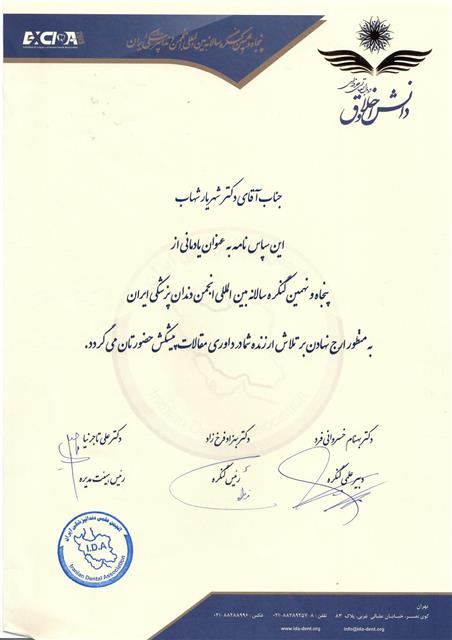 EXCIDA
پنجاه و نهمین کنگره سالانه بین المللی انجمن دندانپزشکی ایران
دانش اخلاق
جناب آقای دکتر شهریار شهاب
این سپاس نامه به عنوان یادمانی از
پنجاه و نهمین کنگره سالانه بین المللی انجمن دندان پزشکی ایران
به منظور ارج نهادن بر تلاش ارزنده شما در داوری مقالات پیشکش حضورتان می گردد.
دکتر بهنام خسروانی فرد
دکتر بهزاد فرخ زاد
دکتر علی تاجرنیا
دبیر علمی کنگره
رئیس کنگره
رئیس هیئت مدیره
انجمن علمی دندانپزشکی ایران
I.D.A
Iranian Dental Association
Iranian Dental Association
تهران
کوی نصر، خیابان علیالی غربی، پلاک ۸۳ تلفن: ۸-۸۸۲۸۹۲۵۷-۰۲۱ فکس: ۸۸۲۸۸۹۹۶-۰۲۱
www.ida-dent.org info@ida-dent.org